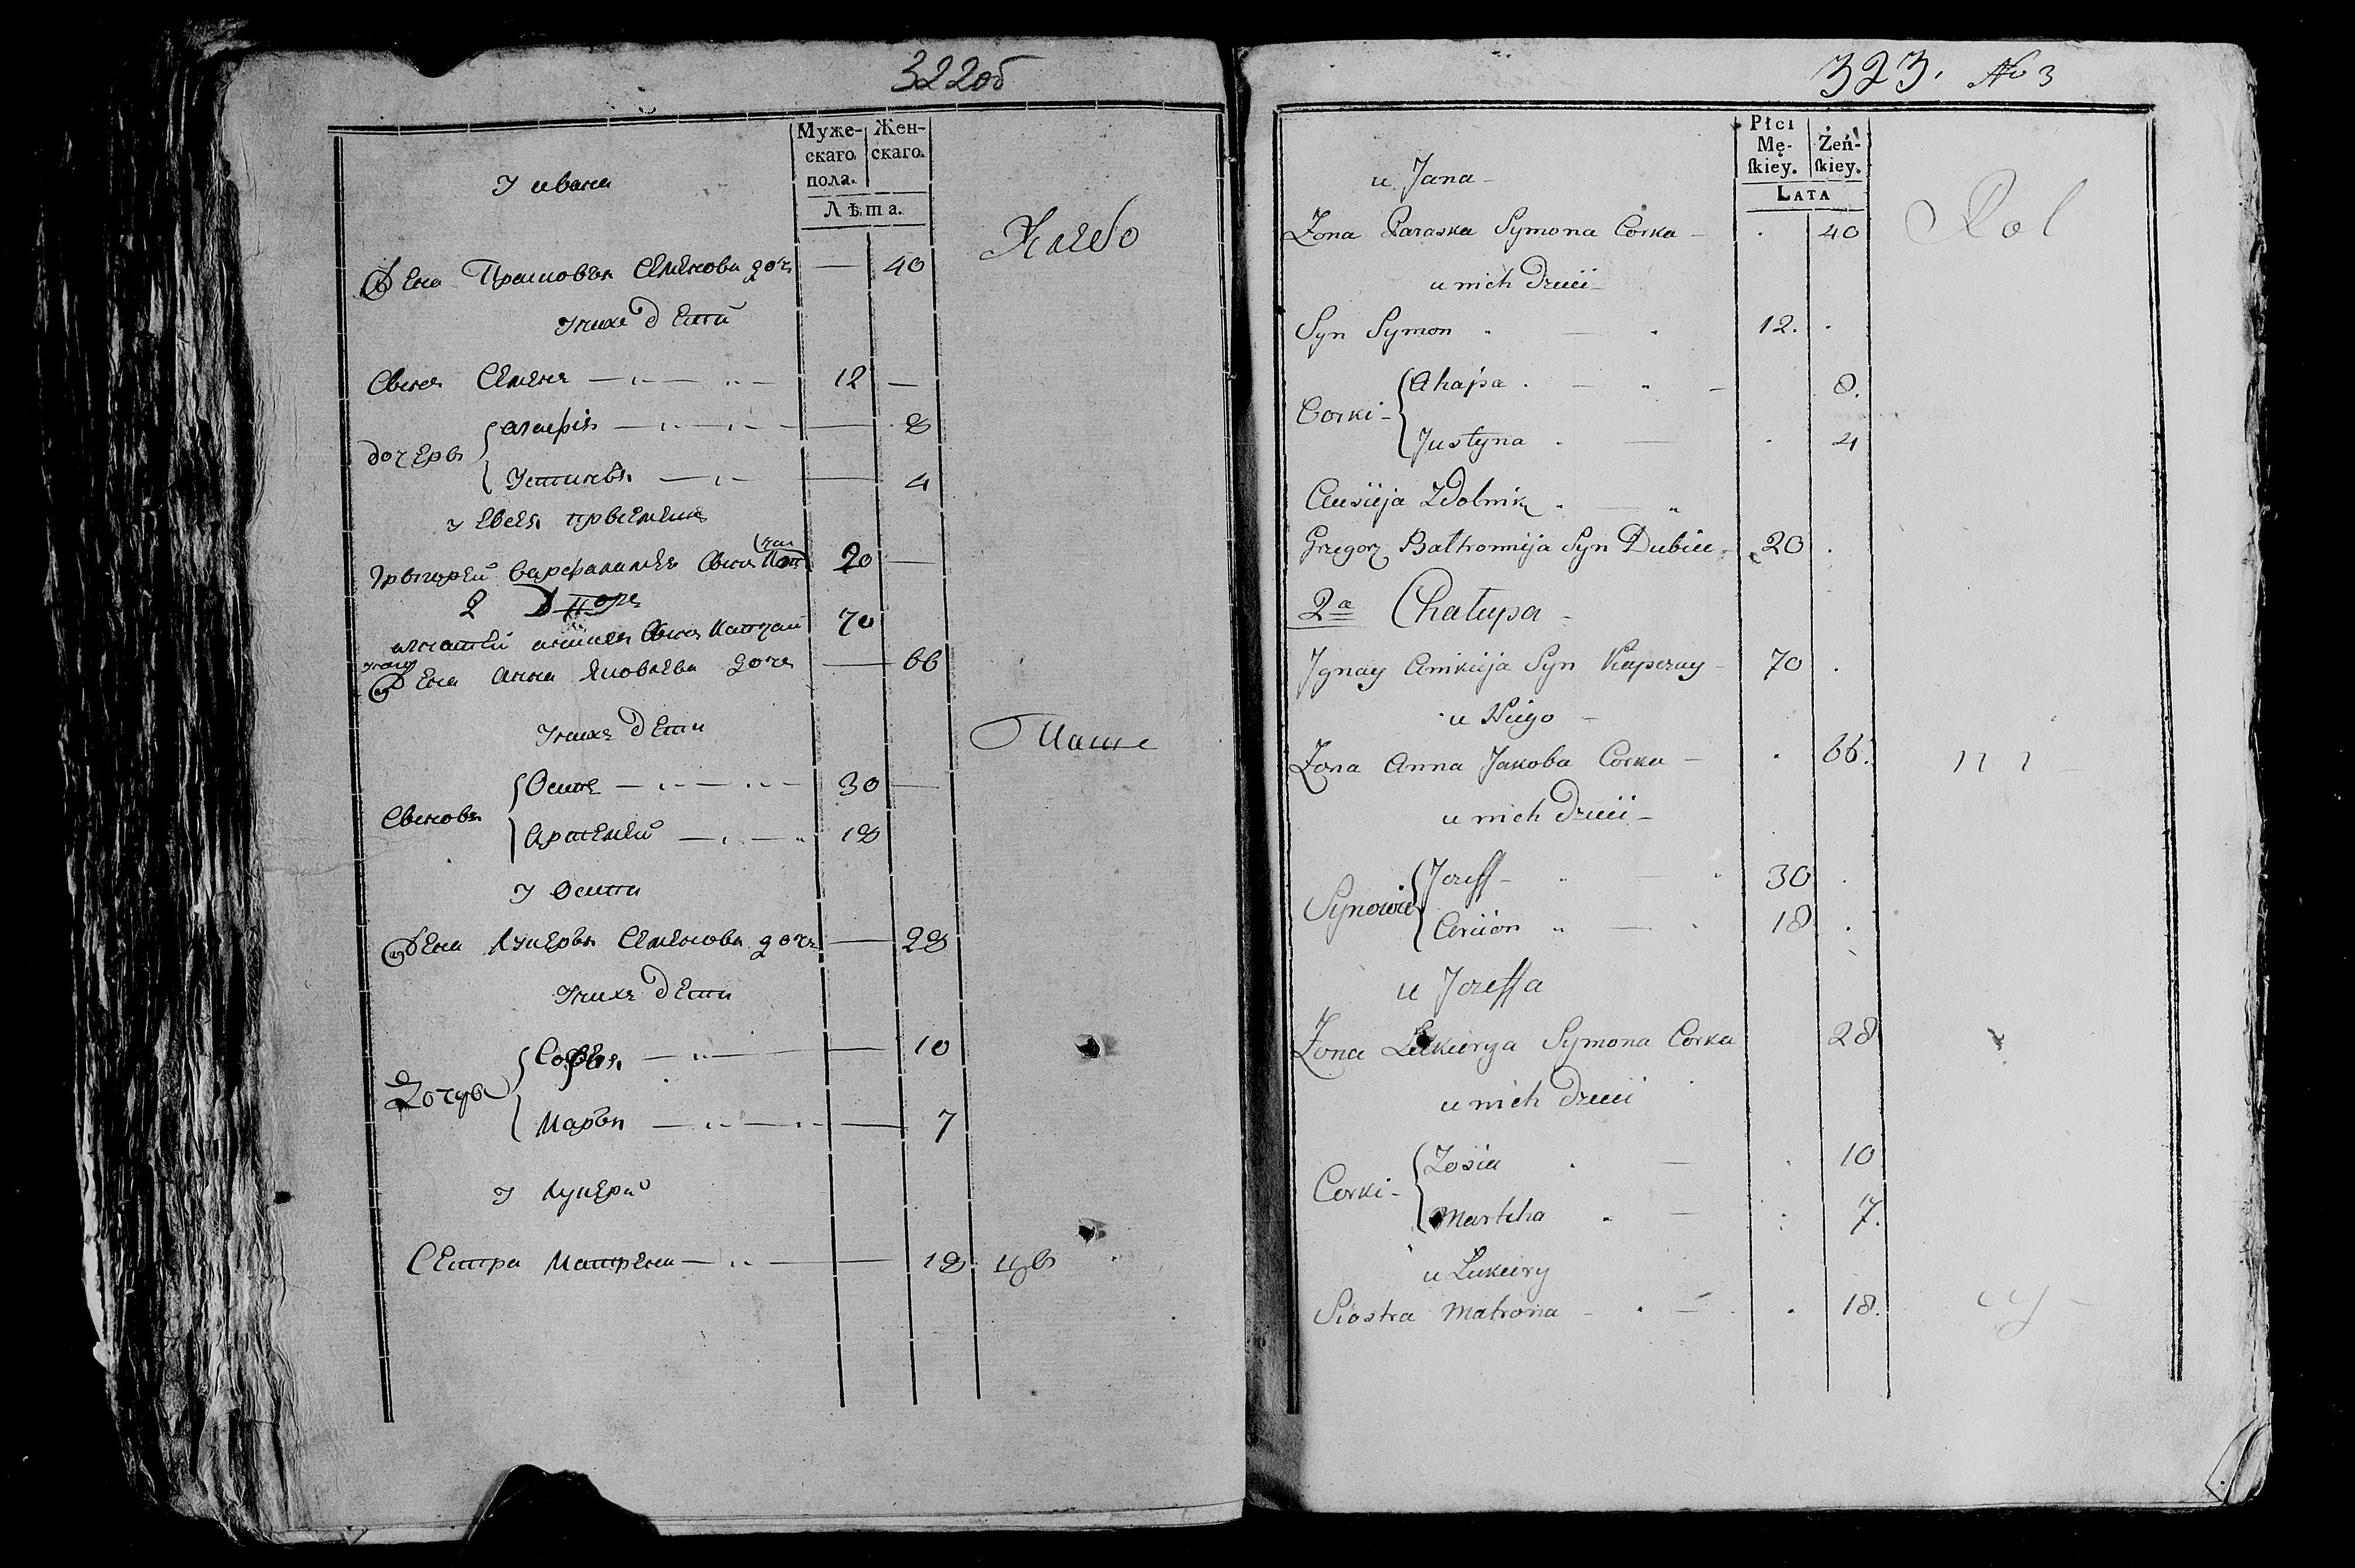 322об
Муже-
скаго
пола.
Жен-
скаго.
Лѣта.
У ивана
Жена Прасковья Семенова доч — 40
Хлебо
У них дети
Сынъ Семенъ — 12 —
дочеры { агафія — 8
Устинья — 4
у Евсея
Грыгорей варфаламея сынъ 20 —
2 Двор
игнатей сынъ Капчай 70
У него
Жена Анна Яковлева доч — 66
У них дети
Паше
Сыновья { Осипъ — 30 —
Артемей — 18
У Осипа
Жена Лукерья Семенова доч — 28
У них дети
Дочеры { Софья — 10
Марья — 7
У Лукерьи
Сестра Матрена — 18
323. No 3
Płci
Mę-
ſkiey.
Żeń-
ſkiey.
LATA
u Jana -
Żona Paraska Symona Corka - . 40
Rol
u nich Dzieci -
Syn Symon . — . 12. .
Corki - { Ahapa . — 8.
Justyna . — . 4
Grzegorz Bałtromieja Syn Dubiec - 20 .
2a Chałupa -
Ignacy Anikieja Syn Kapczay - 70 .
u Niego -
Żona Anna Jakoba Corka - . 66.
u nich Dzieci -
Synowie { Jozeff - 30 .
18 .
u Jozeffa
Żona Łukierya Symona Corka 28
u nich Dzieci
Corki - { Zosia . — . 10
Martcha . — : 7.
u Łukiery
Siostra Matrona - . — . 18.